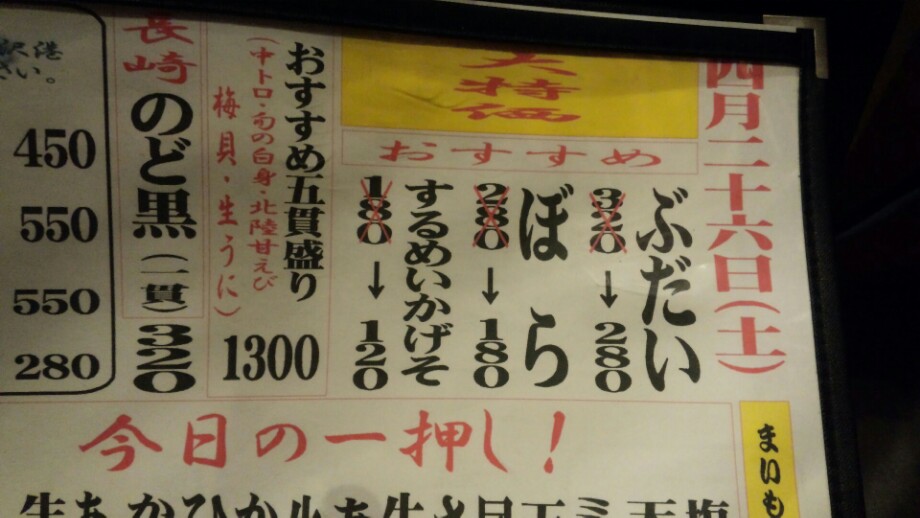 四月二十六日（土）
大特価
おすすめ
ぶだい
320→280
ぼら
280→180
するめいかげそ
180→120
おすすめ五貫盛り
（中トロ・旬の白身・北陸甘えび
梅貝・生うに）
1300
長崎のど黒（一貫）320
450
550
550
280
今日の一押し！
まいも